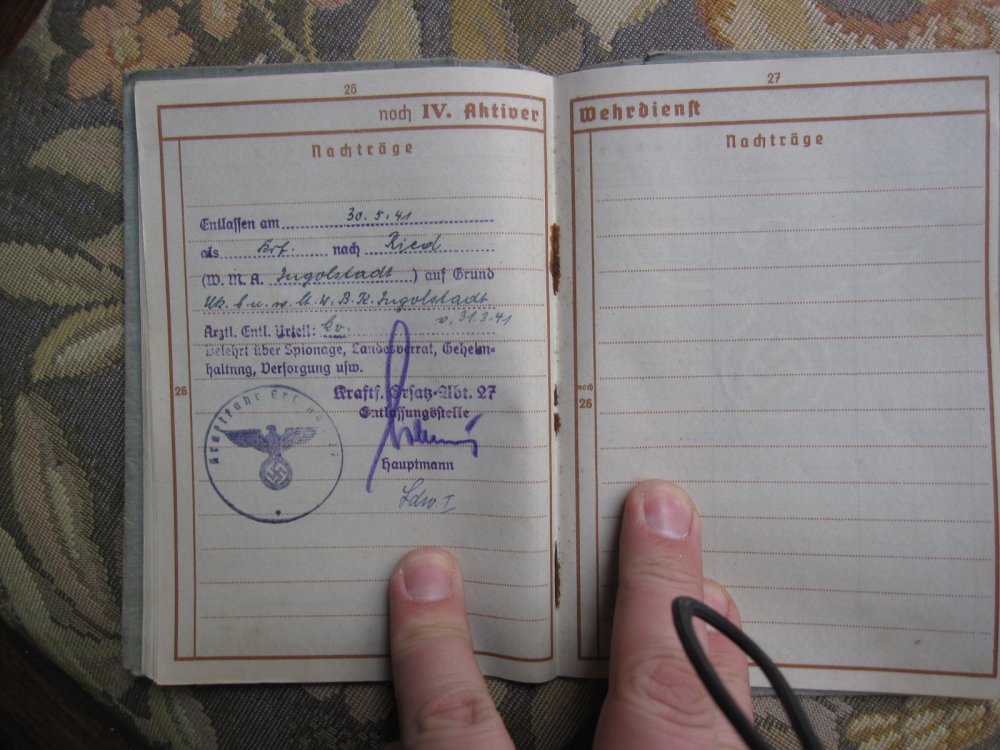 26
noch IV. Aktiver
Nachträge
Entlassen am 30.5.41
als nach Ried
(W. M. A. Ingolstadt) auf Grund
Ingolstadt
v. 31.3.41
Arztl. Entl. Urteil: kv.
Belehrt über Spionage, Landesverrat, Geheim-
haltung, Versorgung usw.
Kraftf. Ersatz-Abt. 27
Entlassungsstelle
Hauptmann
Ldw. I
26
27
Wehrdienst
Nachträge
noch
26